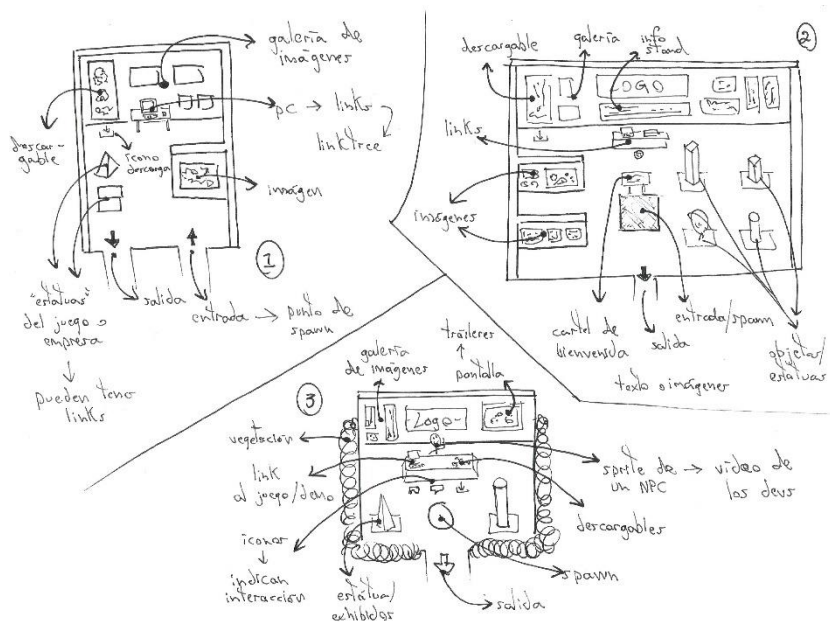 galería de
imágenes
pc → links
linktree
descar-
gable
icono
descarga
imágen
1
"estatuas"
del juego o
empresa
pueden tener
links
salida
entrada → punto de
spawn
2
descargable
galería
info
stand
LOGO
links
imágenes
cartel de
bienvenida
salida
texto o imágenes
entrada/spawn
objetos/
estatuas
3
galería
de imágenes
tráileres
pantalla
-Logo-
vegetación
link
al juego/demo
iconos
indican
interacción
estatua/
exhibidos
salida
spawn
descargables
sprite de → vídeo de
un NPC los devs